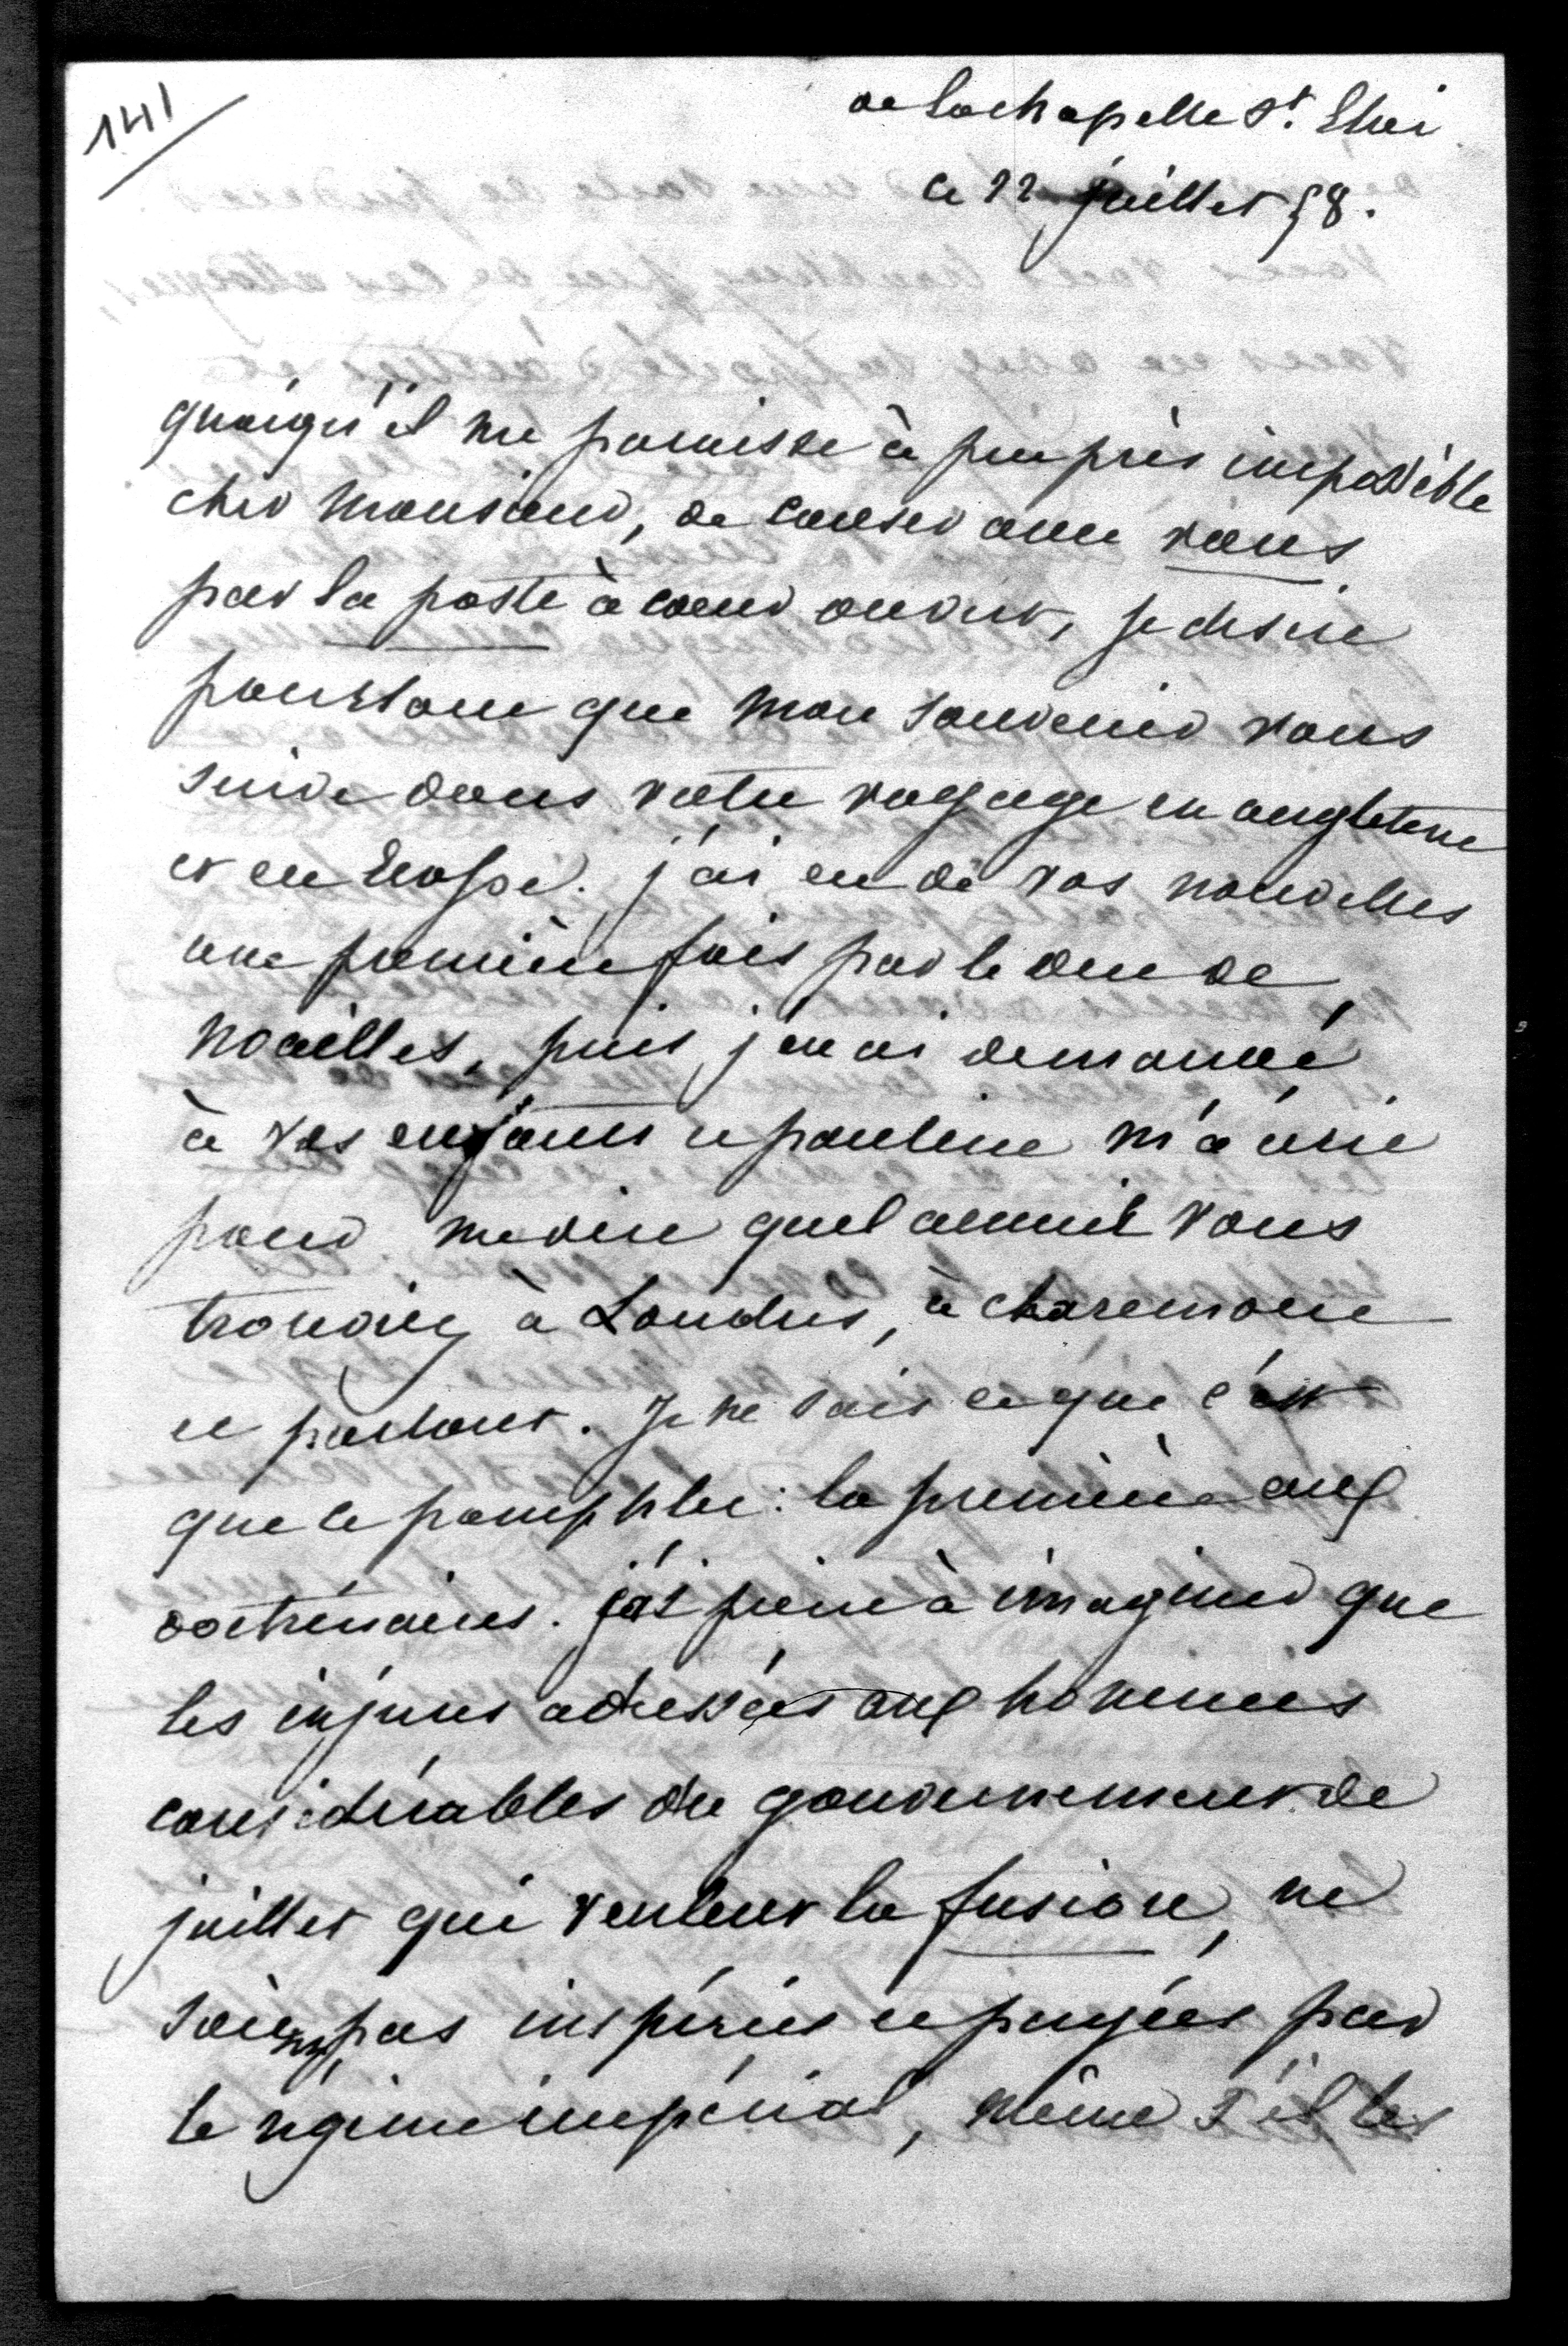 141
de Lachapelle St. Eloi
ce 22 juillet 58.
quoiqu'il me paraisse à peu près impossible
cher Monsieur, de causer avec vous
par la poste à coeur ouvert, je desire
pourtant que mon souvenir vous
suive dans votre voyage en angleterre
et en Ecosse. j'ai eu de vos nouvelles
une première fois par le duc de
Noailles, puis j'en ai demandé
à vos enfants et pauline m'a écrit
pour me dire quel accueil vous
trouviez à Londres, à claremont
et partout. Je ne sais ce que c'est
que ce pamphlet : la première aux
doctrinaires. j'ai peine à imaginer que
les injures adressées aux hommes
considérables du gouvernement de
juillet qui veulent la fusion, ne
soient pas inspirées et payées par
le régime impérial, même s'il les